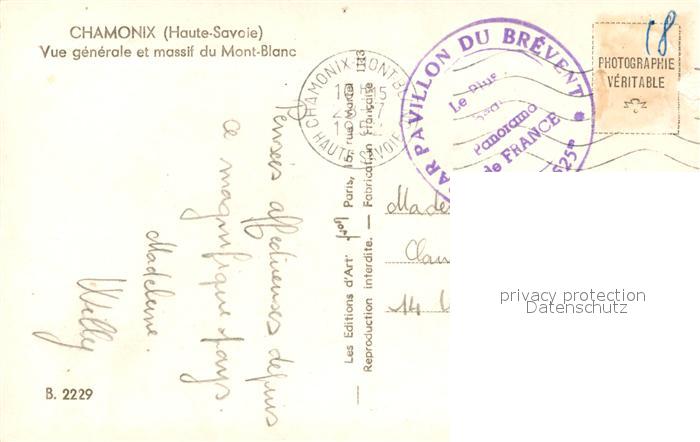 CHAMONIX (Haute-Savoie)
Vue générale et massif du Mont-Blanc
CHAMONIX-MONT-B
HAUTE-SAVOIE
BAR PAVILLON DU BRÉVENT *
Le Plus
Beau
Panorama
de FRANCE
2525m
18
PHOTOGRAPHIE
VÉRITABLE
Pensées affectueuses depuis
ce magnifique pays.
Madeleine.
Willy
Les Editions d'Art Yvon Paris, 15, rue Martel
Reproduction interdite. — Fabrication Française
Made
Clan
14
privacy protection
Datenschutz
B. 2229